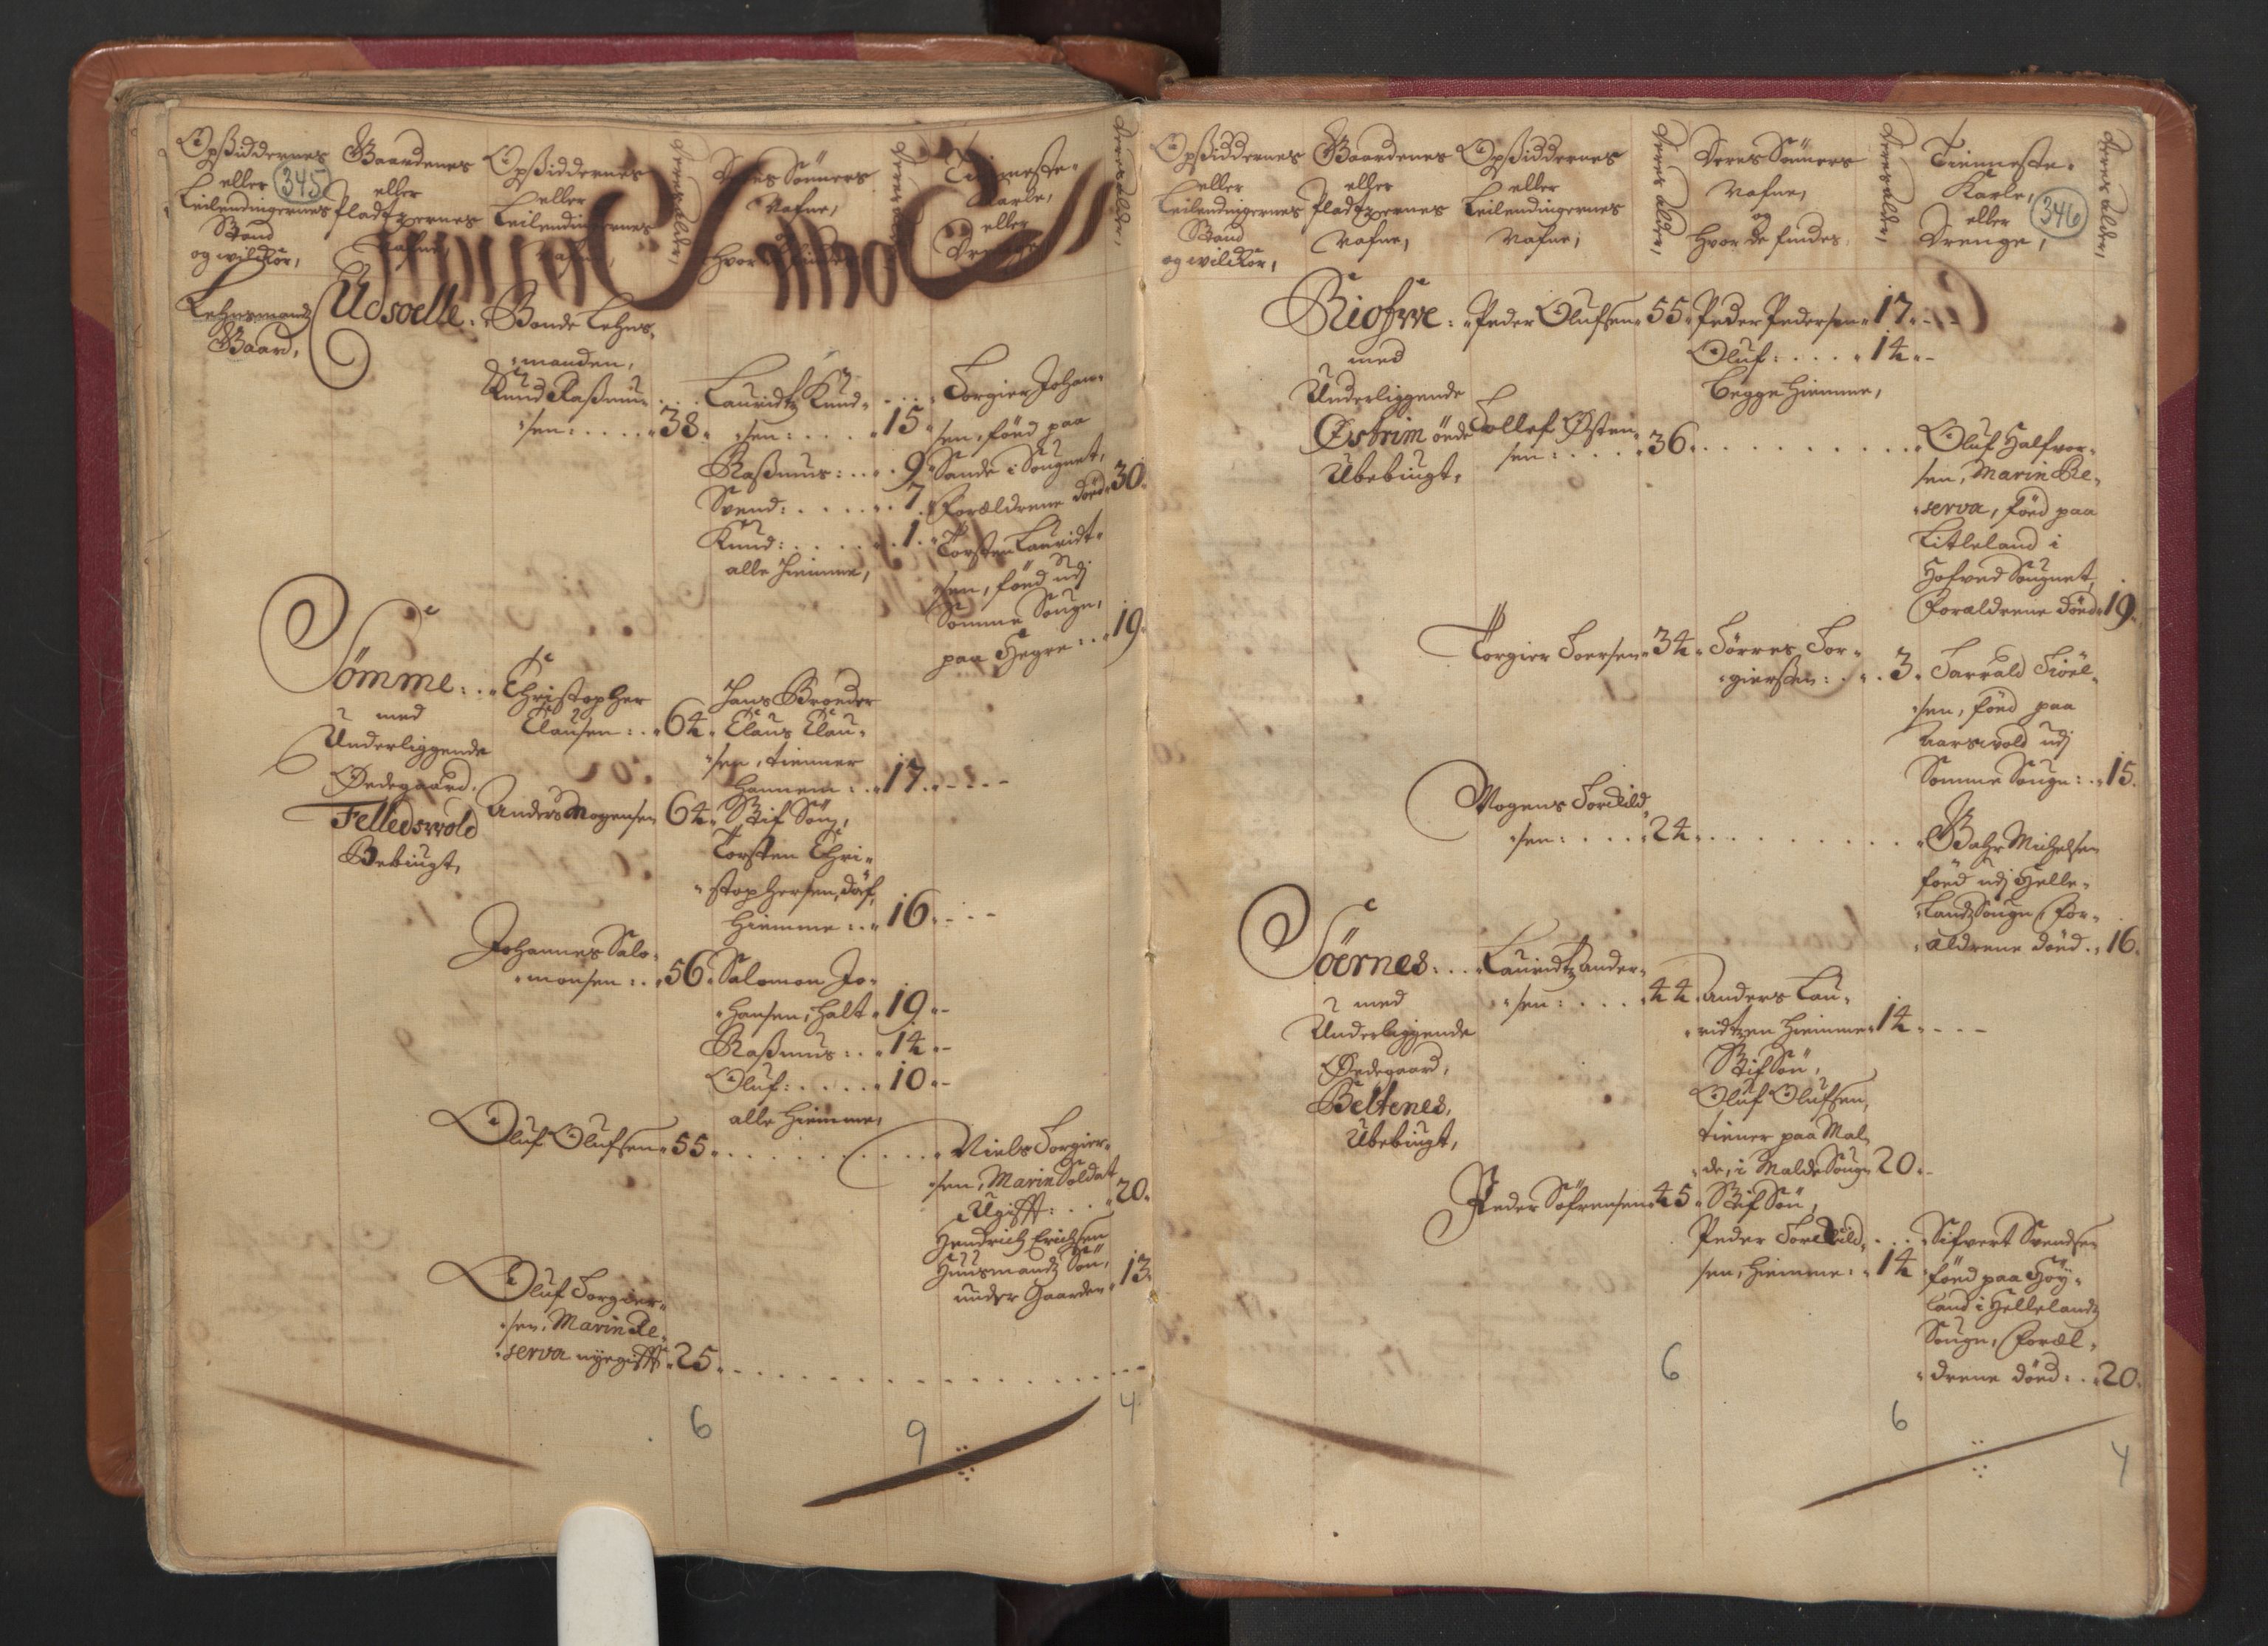 345
Opßiddernes
eller
Leilendingernes
Stand
og wilckor,
Gaardenes
eller
Pladtzernes
Nafne,
Opßiddernes
eller
Leilendingernes
Nafne,
Deres alder,
Deres Sönners
Nafne,
og
Hvor de findes,
Deres alder,
Tienneste-
Karle,
eller
Drenge,
Deres alder,
Lehnsmandz
Gaard,
Udsoelle. Bonde Lehns-
manden,
Knud Raßmu-
sen: . . . . 38.
Lauridtz Knud-
sen: . . . . 15
Raßmus: . . . 9
Svend: . . . . . 7.
Knud: . . . . . 1.
alle hiemme,
Torgier Johan-
sen, föed paa
Sande i Sougnet,
Forældrene död 30.
Torsten Lauridt-
sen, föed udj
Somme Sougn,
paa Hegre: . . 19.
Sömme: . .
med
Underliggende
Ødegaard.
Felledswold
Bebiugt,
Christopher
Clausen: . . 64.
Hans Broeder
Claus Clau-
sen, tienner
hannem: . . 17. - - - -
Anders Mogensen 64.
Stif Sön,
Torsten Chri-
stophersen, döf,
hiemme: . . 16. - - -
Johannes Salo-
monsen: . . 56.
Salomon Jo-
hansen, halt 19. -
Raßmus: . . 14. -
Oluf: . . . . . 10. -
alle hiemme,
Oluf Olufsen 55. . . . . . . . . . .
Niels Torgier-
sen, Marin Soldat
Ugift: . . . 20.
Hendrich Erichsen
Huusmandz Sön,
under Gaarden 13.
Oluf Torgier-
sen, Marin Re-
serva nyegifft 25. . . . . . . . . . . . . . .
6
9
4
346
Opßiddernes
eller
Leilendingernes
Stand
og wilckor,
Gaardenes
eller
Pladtzernes
Nafne,
Opßiddernes
eller
Leilendingernes
Nafne,
Deres alder,
Deres Sönners
Nafne,
og
Hvor de findes,
Deres alder,
Tienneste-
Karle,
eller
Drenge,
Deres alder,
Riofwe:
med
Underliggende
Østrim öede
Ubebiugt,
Peder Olufsen 55.
Peder Pedersen 17. - -
Oluf: . . . . 14. -
begge hiemme,
Tollef Østen-
sen: . . . . 36. . . . . . . . . .
Oluf Halfvor-
sen, Marin Re-
serva, föed paa
Litleland i
Hofved Sougnet,
Forældrene död 19.
Torgier Toersen 34.
Törres Tor-
gierßen: . . 3.
Tarrald Tioel-
sen, föed paa
Aarswold udj
Somme Sougn: . . 15.
Mogens Torkild-
sen: . . . . 24. . . . . . . . . .
Bahr Michelsen
föed udj Helle-
Landz Sougn, For-
ældrene döed. . 16.
Söernes: . .
med
Underliggende
Ødegaard,
Beltenes,
Ubebiugt,
Lauridtz Ander-
sen: . . . 44.
Anders Lau-
ridtzen hiemme 14. - - -
Stif Sön,
Oluf Olufsen,
tiener paa Mal-
de, i Malde Sougn 20. -
Peder Söfrensen 45.
Stif Sön,
Peder Torkild-
sen, hiemme: . 14.
Sifvert Svendsen
föed paa Höy-
Land i Hellelandz
Sougn, Foræl-
drene döed: . . 20.
6
6
4